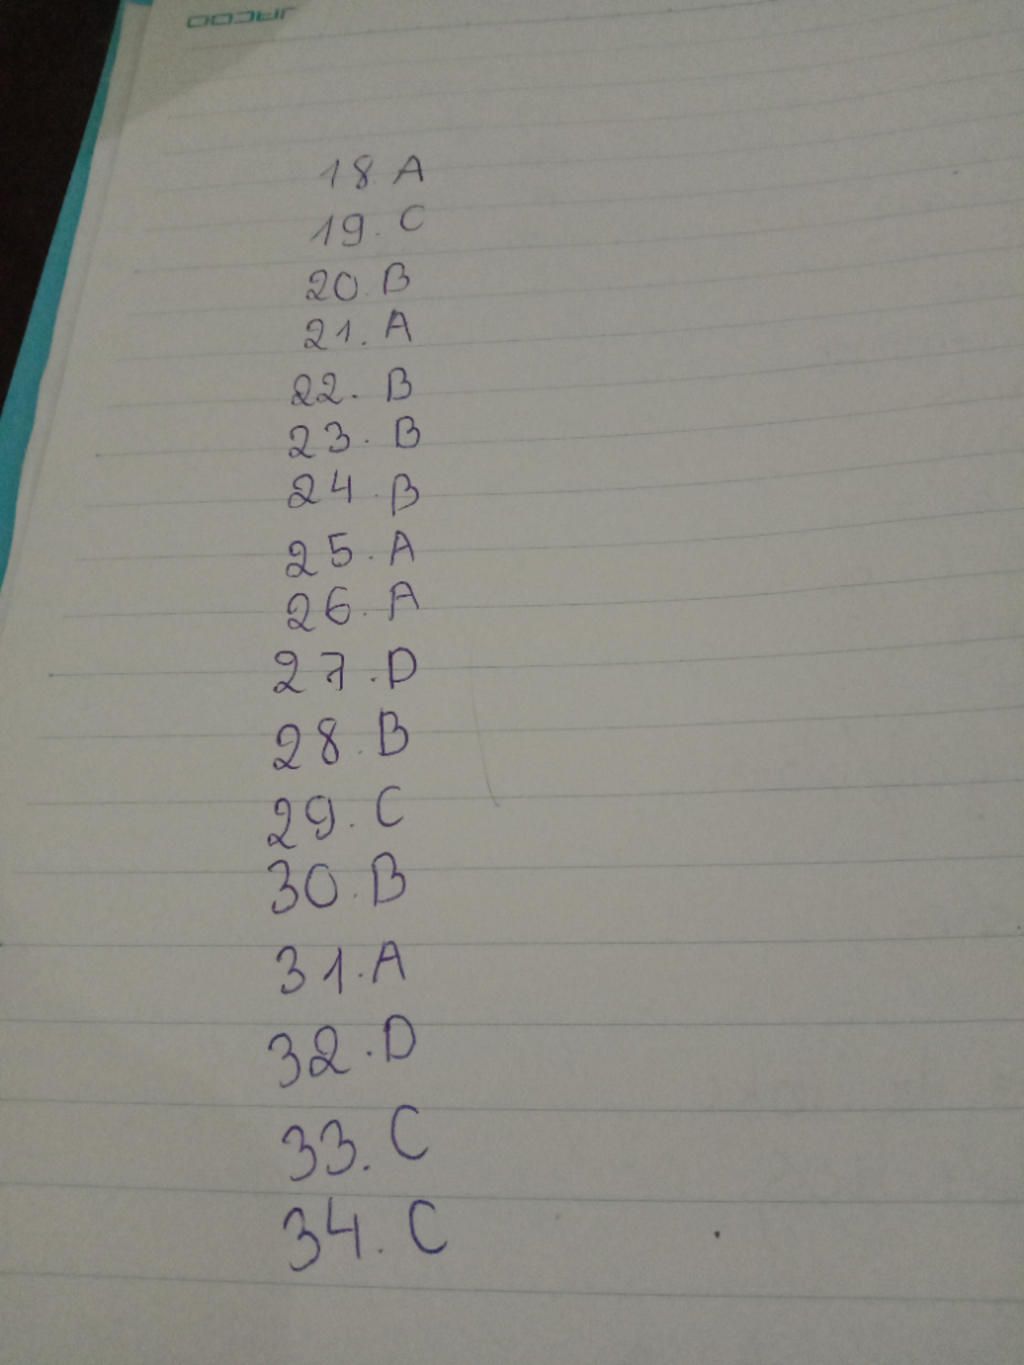 18. A
19. C
20. B
21. A
22. B
23. B
24. B
25. A
26. A
27. D
28. B
29. C
30. B
31. A
32. D
33. C
34. C